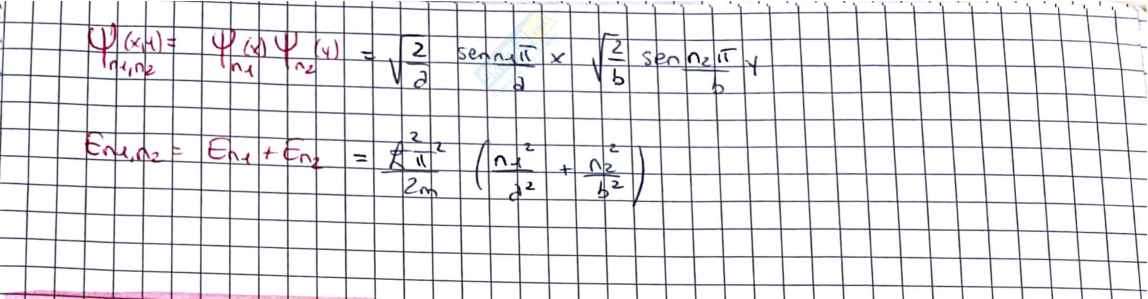 Ψn1,n2(x,y) = Ψn1(x) Ψn2(y) = √(2/a) sen n1π/a x √(2/b) sen n2π/b y
En1,n2 = En1 + En2 = ħ²π²/2m (n1²/a² + n2²/b²)